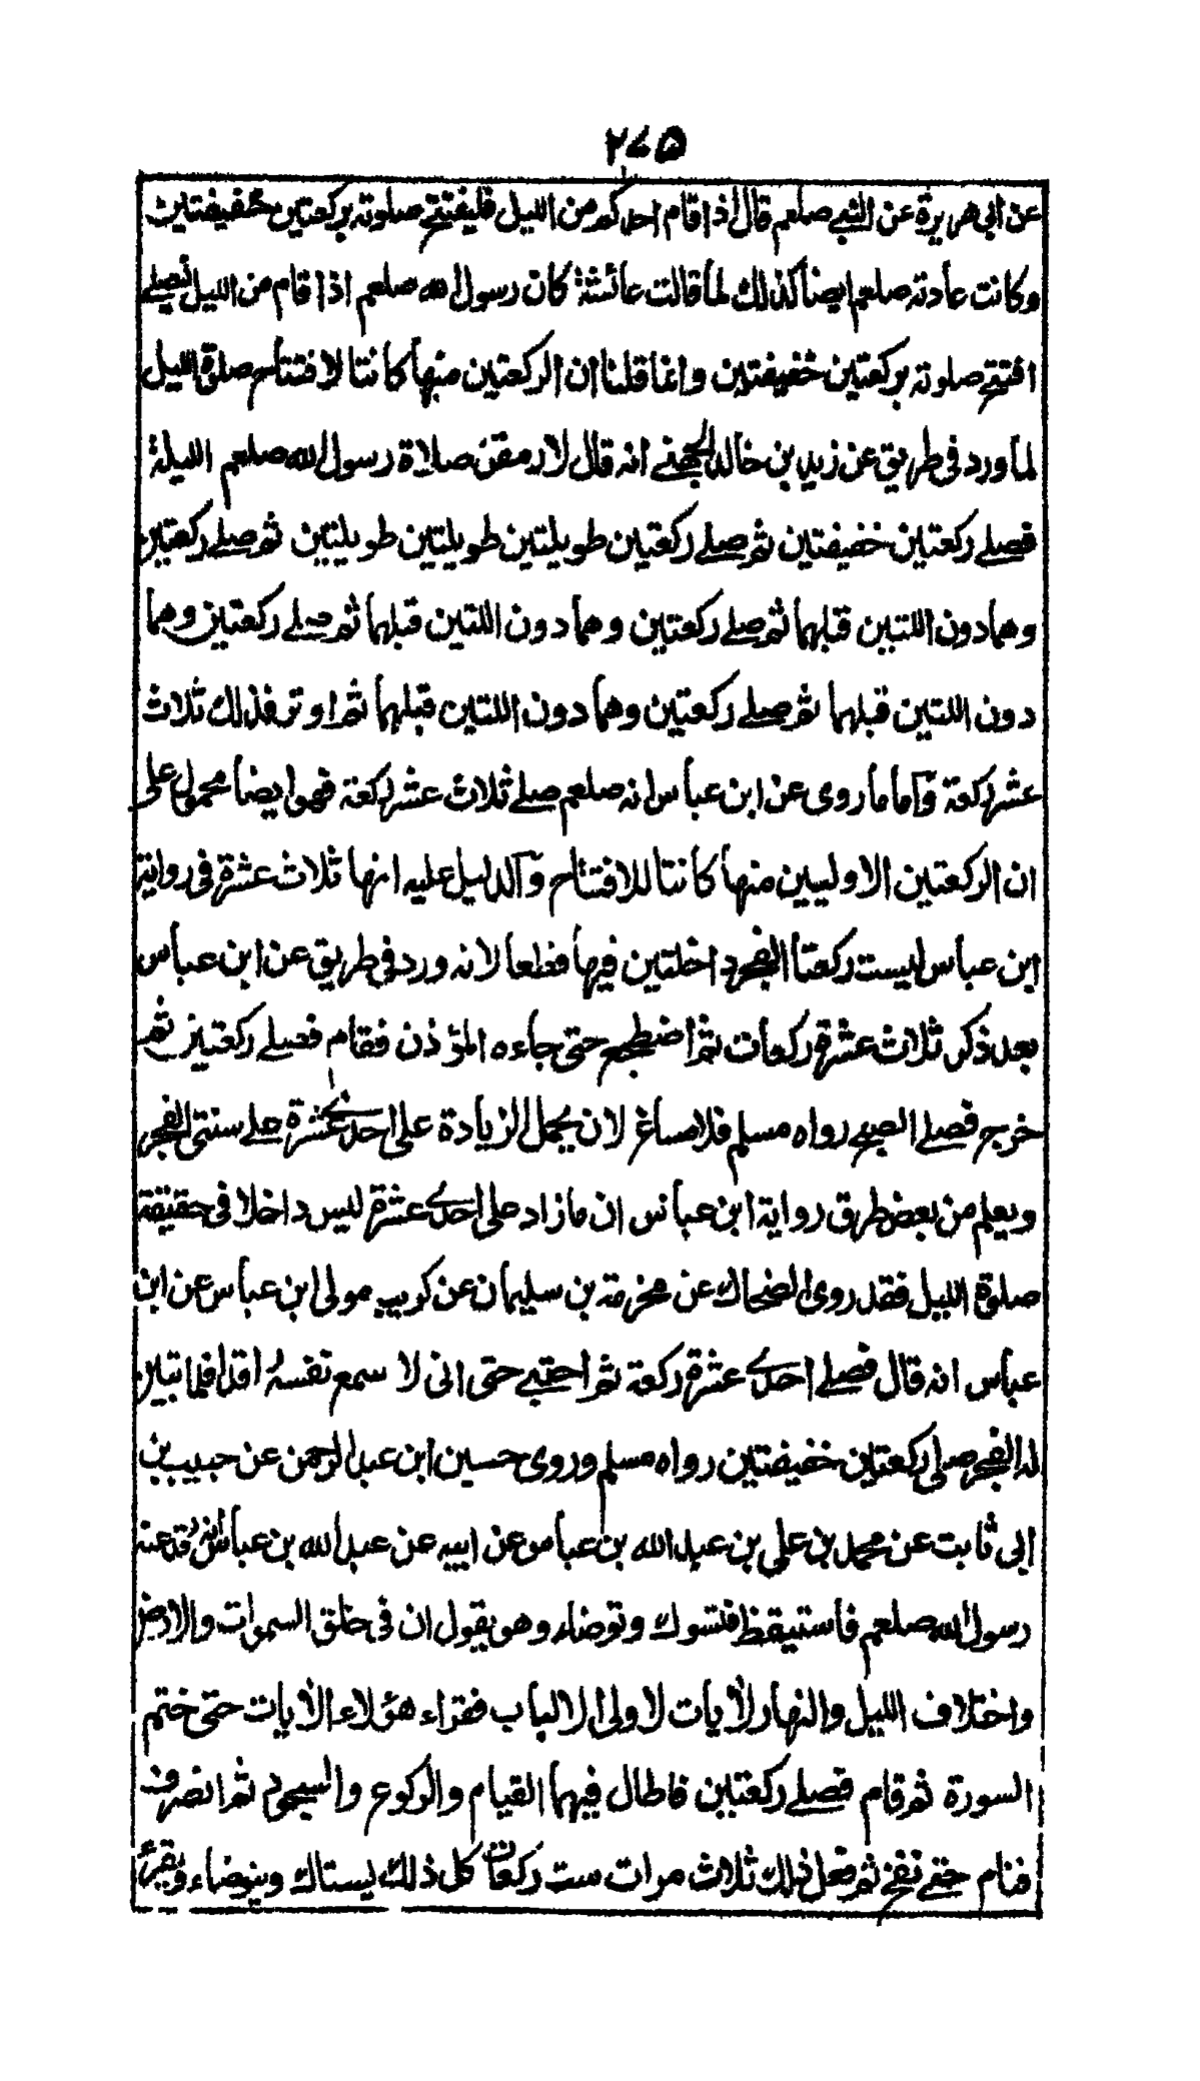 ۲۷۵
عن ابی هریرة عن النبے صلعم قال اذا قام احدکم من اللیل فلیفتتح صلوته برکعتین خفیفتین
وکانت عادته صلعم ایضاً کذلك لما قالت عائشة کان رسول الله صلعم اذا قام من اللیل لیصلے
افتتح صلوته برکعتین خفیفتین وانما قلنا ان الرکعتین منها کانتا لافتتاح صلوة اللیل
لما ورد فی طریق عن زید بن خالد الجهنے انه قال لارمقن صلاة رسول الله صلعم اللیلة
فصلے رکعتین خفیفتین ثم صلے رکعتین طویلتین طویلتین طویلتین ثم صلے رکعتین
وهما دون اللتین قبلهما ثم صلے رکعتین وهما دون اللتین قبلهما ثم صلے رکعتین وهما
دون اللتین قبلهما ثم صلے رکعتین وهما دون اللتین قبلهما ثم اوتر فذلك ثلاث
عشر رکعة وآما ما روی عن ابن عباس انه صلعم صلے ثلاث عشر رکعة فهو ایضاً محمول علی
ان الرکعتین الاولیین منها کانتا للافتتاح وآلدلیل علیه انها ثلاث عشرة فی روایة
ابن عباس لیست رکعتا الفجر داخلتین فیها قطعا لانه ورد فی طریق عن ابن عباس
بعد ذکر ثلاث عشرة رکعات ثم اضطجع حتی جاءه المؤذن فقام فصلے رکعتین ثم
خرج فصلے الصبح رواه مسلم فلا مساغ لان یحمل الزیادة علی احدے عشرة علے سنتی الفجر
ویعلم من بعض طرق روایة ابن عباس ان ما زاد علی احدے عشرة لیس داخلا فی حقیقة
صلوة اللیل فقد روی الضحاك عن مخرمة بن سلیمان عن کریب مولی ابن عباس عن ابن
عباس انه قال فصلے احدے عشرة رکعة ثم احتبے حتی انی لا سمع نفسهُ اقدا فلما تبین
له الفجر صلی رکعتین خفیفتین رواه مسلم وروی حسین ابن عبد الرحمن عن حبیب بن
ابی ثابت عن محمد بن علی بن عبد الله بن عباس عن ابیه عن عبد الله بن عباس انه رقد عند
رسول الله صلعم فاستیقظ فتسوك وتوضاء وهو یقول ان فی خلق السموات والارض
واختلاف اللیل والنهار لآیات لاولی الالباب فقراء هؤلاء الآیات حتی ختم
السورة ثم قام فصلے رکعتین فاطال فیهما القیام والرکوع والسجود ثم انصرف
فنام حتے نفخ ثم فعل ذلك ثلاث مرات ست رکعات کل ذلك یستاك ویتوضاء ویقرء